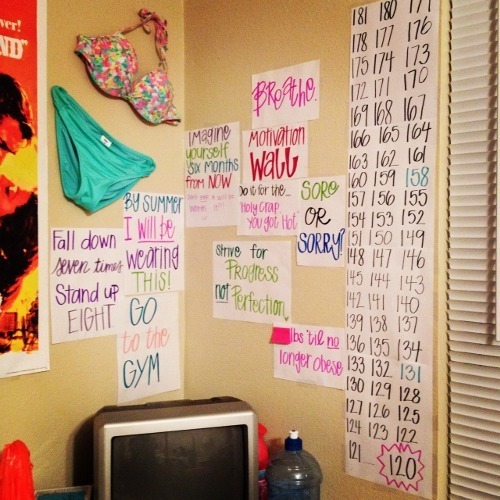 ver!
ND
Breathe.
Imagine
yourself
six months
from NOW
it will be
worth it
Motivation
Wall
Do it for the...
"Holy crap
You got Hot"
SORE
OR
SORRY?
By SUMMER
I will be
wearing
THIS!
Fall down
seven times
Stand up
EIGHT
GO
to the
GYM
Strive for
Progress
not Perfection
lbs 'til no
longer obese
181 180 179
178 177 176
175 174 173
172 171 170
169 168 167
166 165 164
163 162 161
160 159 158
157 156 155
154 153 152
151 150 149
148 147 146
145 144 143
142 141 140
139 138 137
136 135 134
133 132 131
130 129 128
127 126 125
124 123 122
121 120